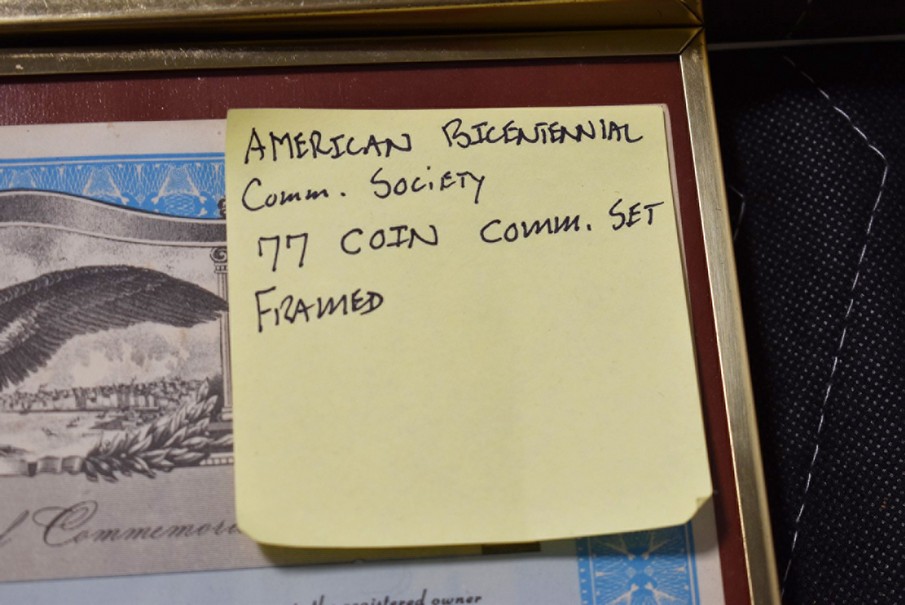 AMERICAN BICENTENNIAL
Comm. SOCIETY
77 COIN Comm. SET
FRAMED
Commemor
the registered owner